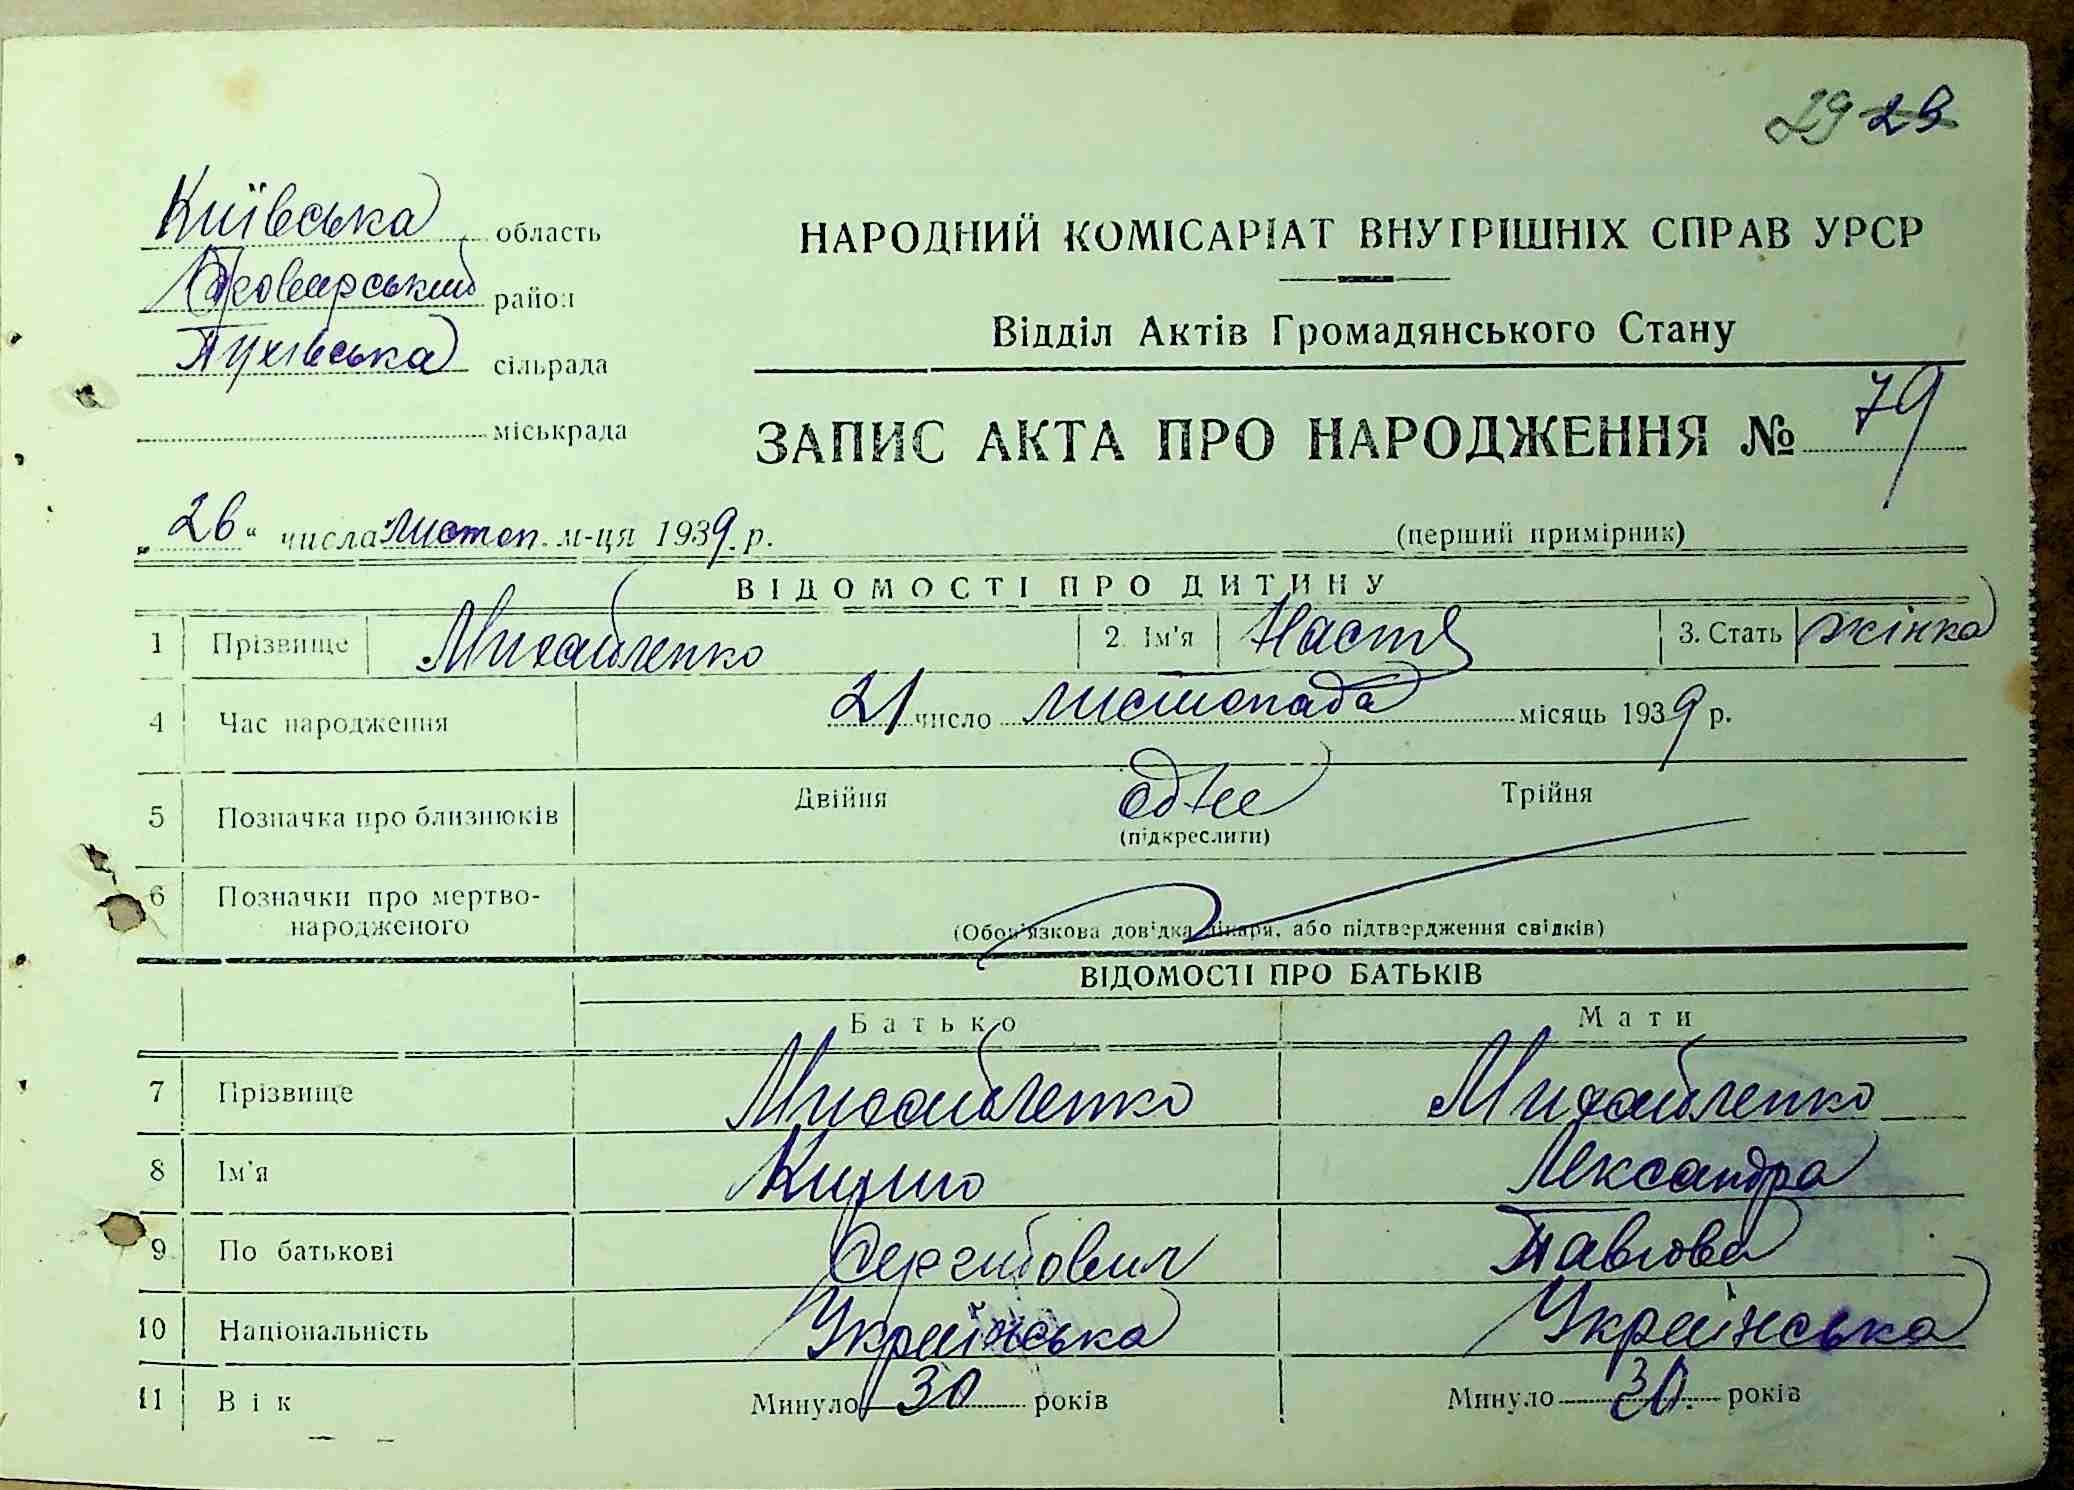 29 23
Київська область
Броварський район
Пухівська сільрада
міськрада
НАРОДНИЙ КОМІСАРІАТ ВНУТРІШНІХ СПРАВ УРСР
Відділ Актів Громадянського Стану
ЗАПИС АКТА ПРО НАРОДЖЕННЯ № 79
„26“ числа листоп. м-ця 1939 р. (перший примірник)
ВІДОМОСТІ ПРО ДИТИНУ
1 Прізвище Михайленко 2. Ім'я Настя 3. Стать жінка
4 Час народження 21 число листопада місяць 1939 р.
5 Позначка про близнюків Двійня одне Трійня
(підкреслити)
6 Позначки про мертво-
народженого (Обов'язкова довідка лікаря, або підтвердження свідків)
ВІДОМОСТІ ПРО БАТЬКІВ
Батько Мати
7 Прізвище Михайленко Михайленко
8 Ім'я Кирило Лександра
9 По батькові Сергійович Павлова
10 Національність Українська Українська
11 Вік Минуло 30 років Минуло 30. років